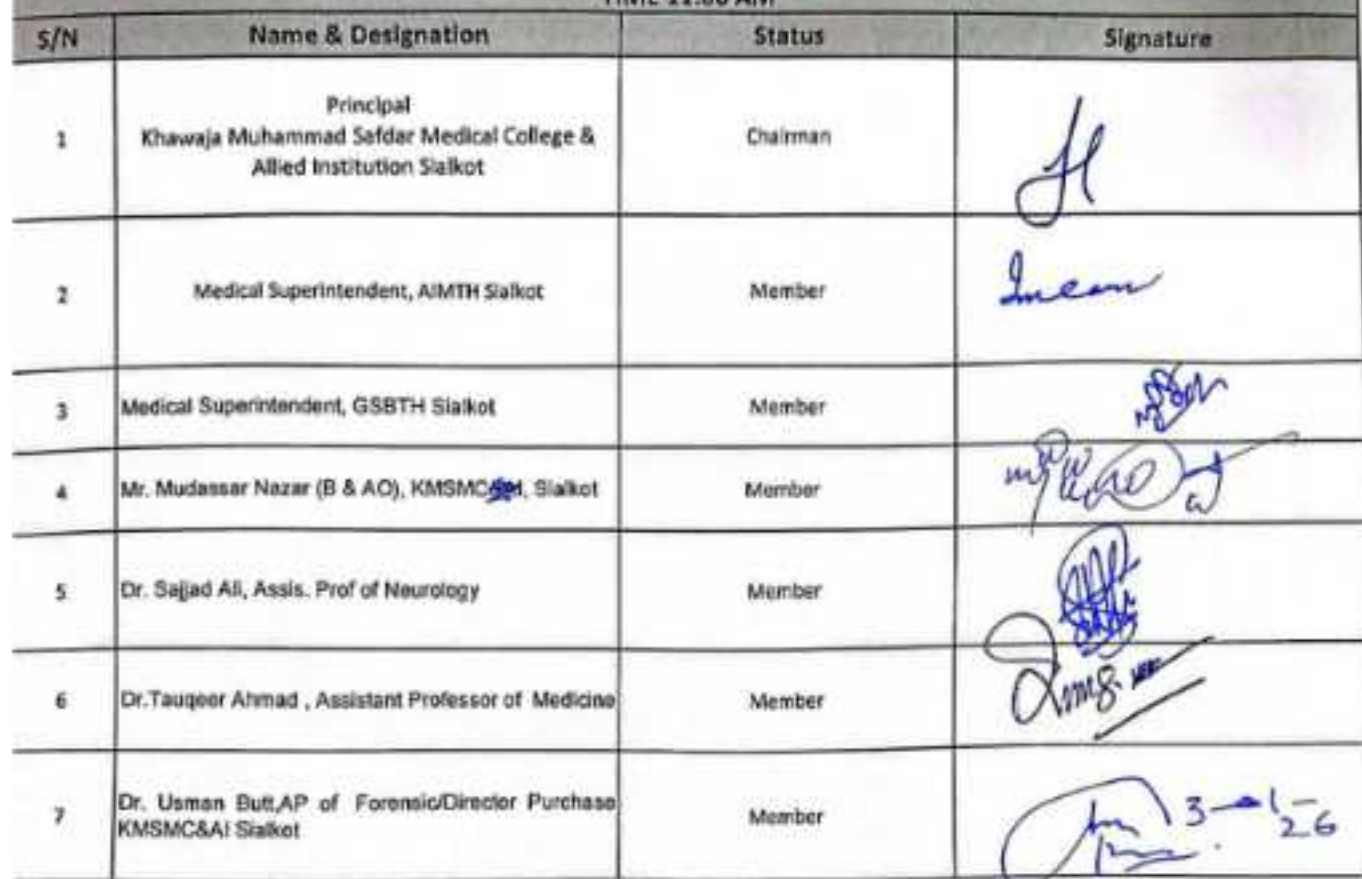 TIME 11:00 AM
S/N Name & Designation Status Signature
1 Principal
Khawaja Muhammad Safdar Medical College &
Allied Institution Sialkot Chairman
2 Medical Superintendent, AIMTH Sialkot Member
3 Medical Superintendent, GSBTH Sialkot Member
4 Mr. Mudassar Nazar (B & AO), KMSMC, Sialkot Member
5 Dr. Sajjad Ali, Assis. Prof of Neurology Member
6 Dr.Tauqeer Ahmad , Assistant Professor of Medicine Member
7 Dr. Usman Butt,AP of Forensic/Director Purchase
KMSMC&AI Sialkot Member 3-1-26